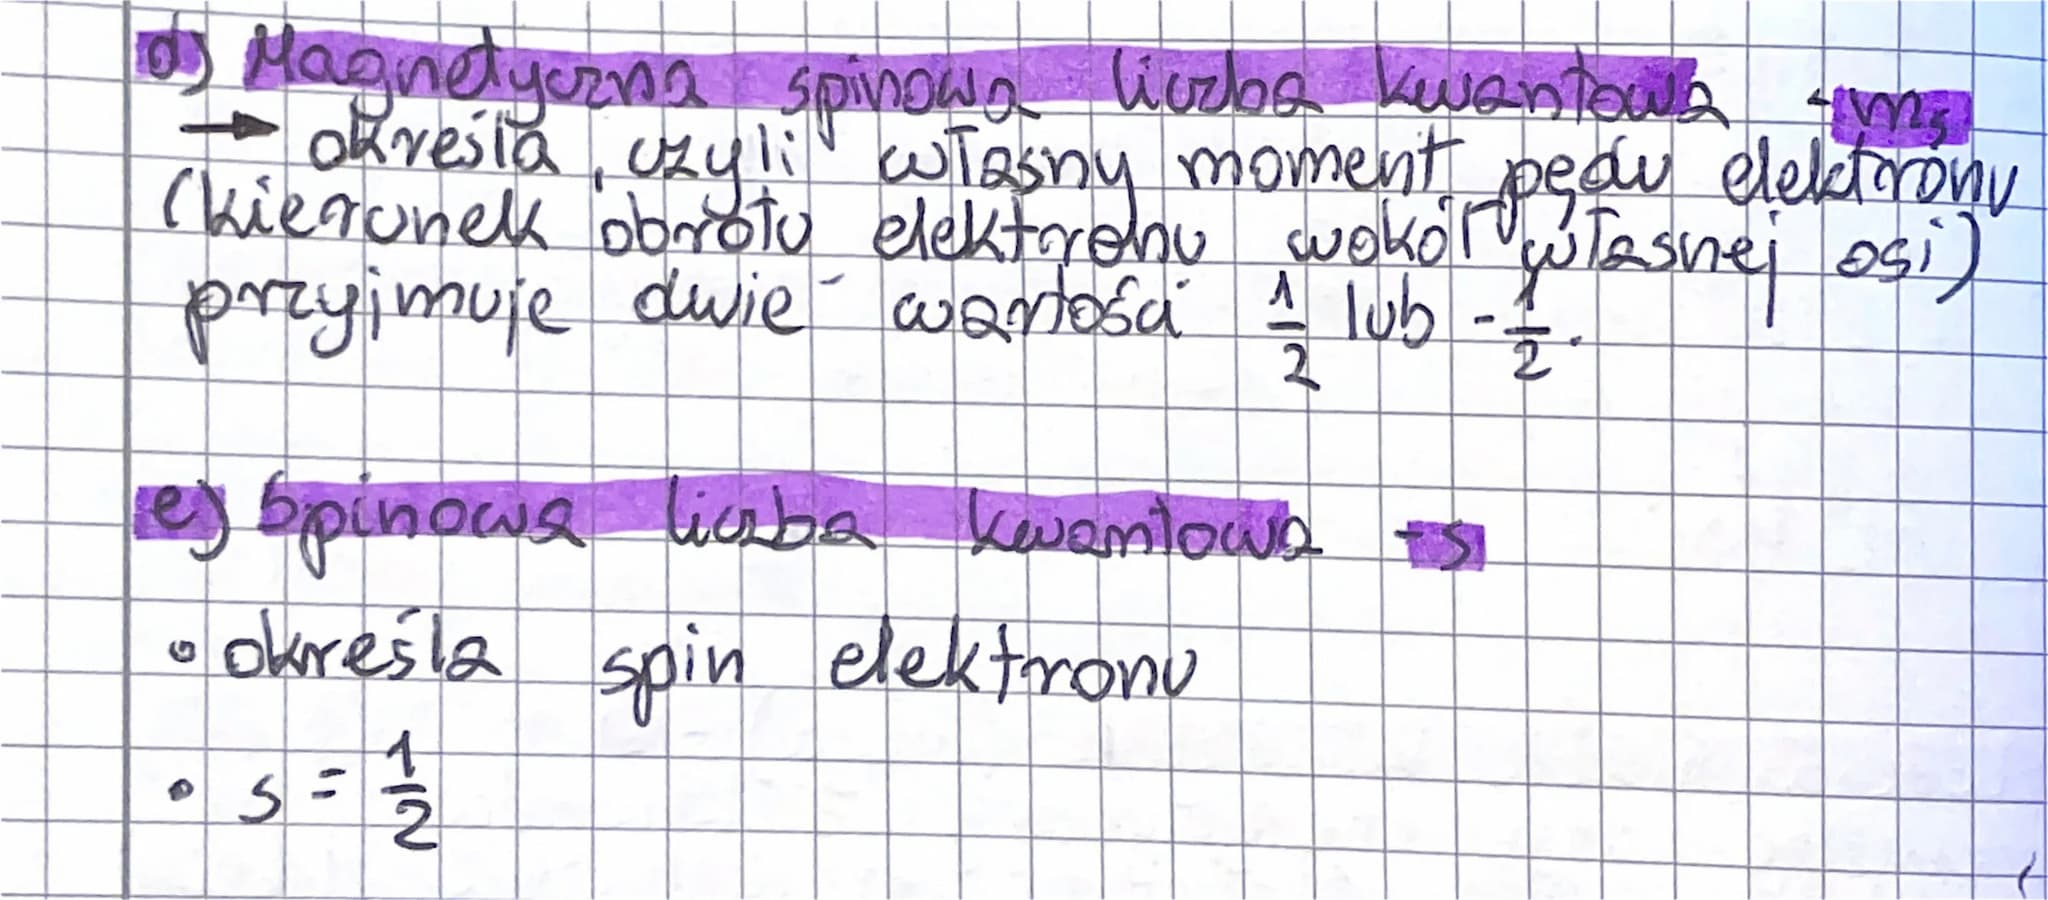 d) Magnetyczna spinowa liczba kwantowa - mₛ
→ określa, czyli własny moment pędu elektronu
(kierunek obrotu elektronu wokół własnej osi)
przyjmuje dwie wartości 1/2 lub -1/2.
e) Spinowa liczba kwantowa - s
• określa spin elektronu
• s = 1/2